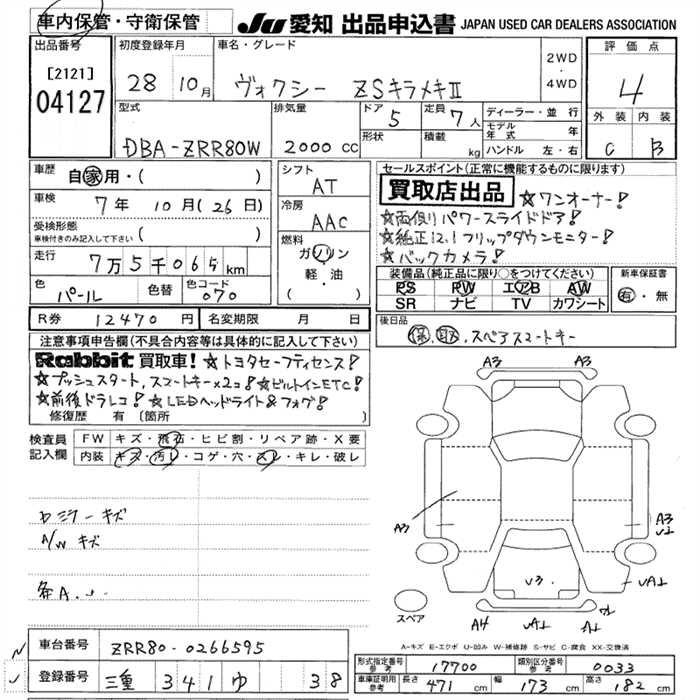 車内保管・守衛保管 JU 愛知 出品申込書 JAPAN USED CAR DEALERS ASSOCIATION
出品番号 初度登録年月 車名・グレード 評価点
[2121]
04127
28 10月 ヴォクシー ZSキラメキⅡ 2WD・4WD
4
型式 排気量 ドア 5 定員 7人 ディーラー・並行 外装 内装
DBA-ZRR80W 2000cc 形状 積載 kg モデル年式 年 ハンドル 左・右 C B
車歴 自家用・( ) シフト AT
セールスポイント(正常に機能するものに限ります)
車検 7年 10月(26日) 冷房 AAC
買取店出品 ☆ワンオーナー!
受検形態 車検付きのみ記入して下さい ( )
☆両側パワースライドドア!
☆純正12.1フリップダウンモニター!
☆バックカメラ!
走行 7万5千065km 燃料 ガソリン 軽・油 ( )
色 パール 色替 色コード 070
装備品(純正品に限り○をつけてください) 新車保証書
PS PW エアB AW 有・無
SR ナビ TV カワシート
R券 12470円 名変期限 月 日
後日品 保、取、スペアスマートキー
注意事項申告欄(不具合内容等は具体的に記入して下さい)
Rabbit 買取車! ☆トヨタセーフティセンス!
☆プッシュスタート,スマートキー×2コ!☆ビルトインETC!
☆前後ドラレコ!☆LEDヘッドライト&フォグ!
修復歴 有 〔箇所
検査員記入欄 FW キズ・飛石・ヒビ割・リペア跡・X要
内装 キズ・汚レ・コゲ・穴・スレ・キレ・破レ
A3 A3
ミラーキズ
A/W キズ
A3 A3
V3
A4 VA1 VA1
スペア
A-キズ E-エクボ U-凹み W-補修跡 S-サビ C-腐食 XX-交換済
車台番号 ZRR80-0266595
形式指定番号 参考 17700 類別区分番号 参考 0033
登録番号 三重 341 ゆ 38
車庫証明用 参考 長さ 471cm 幅 173cm 高さ 182cm